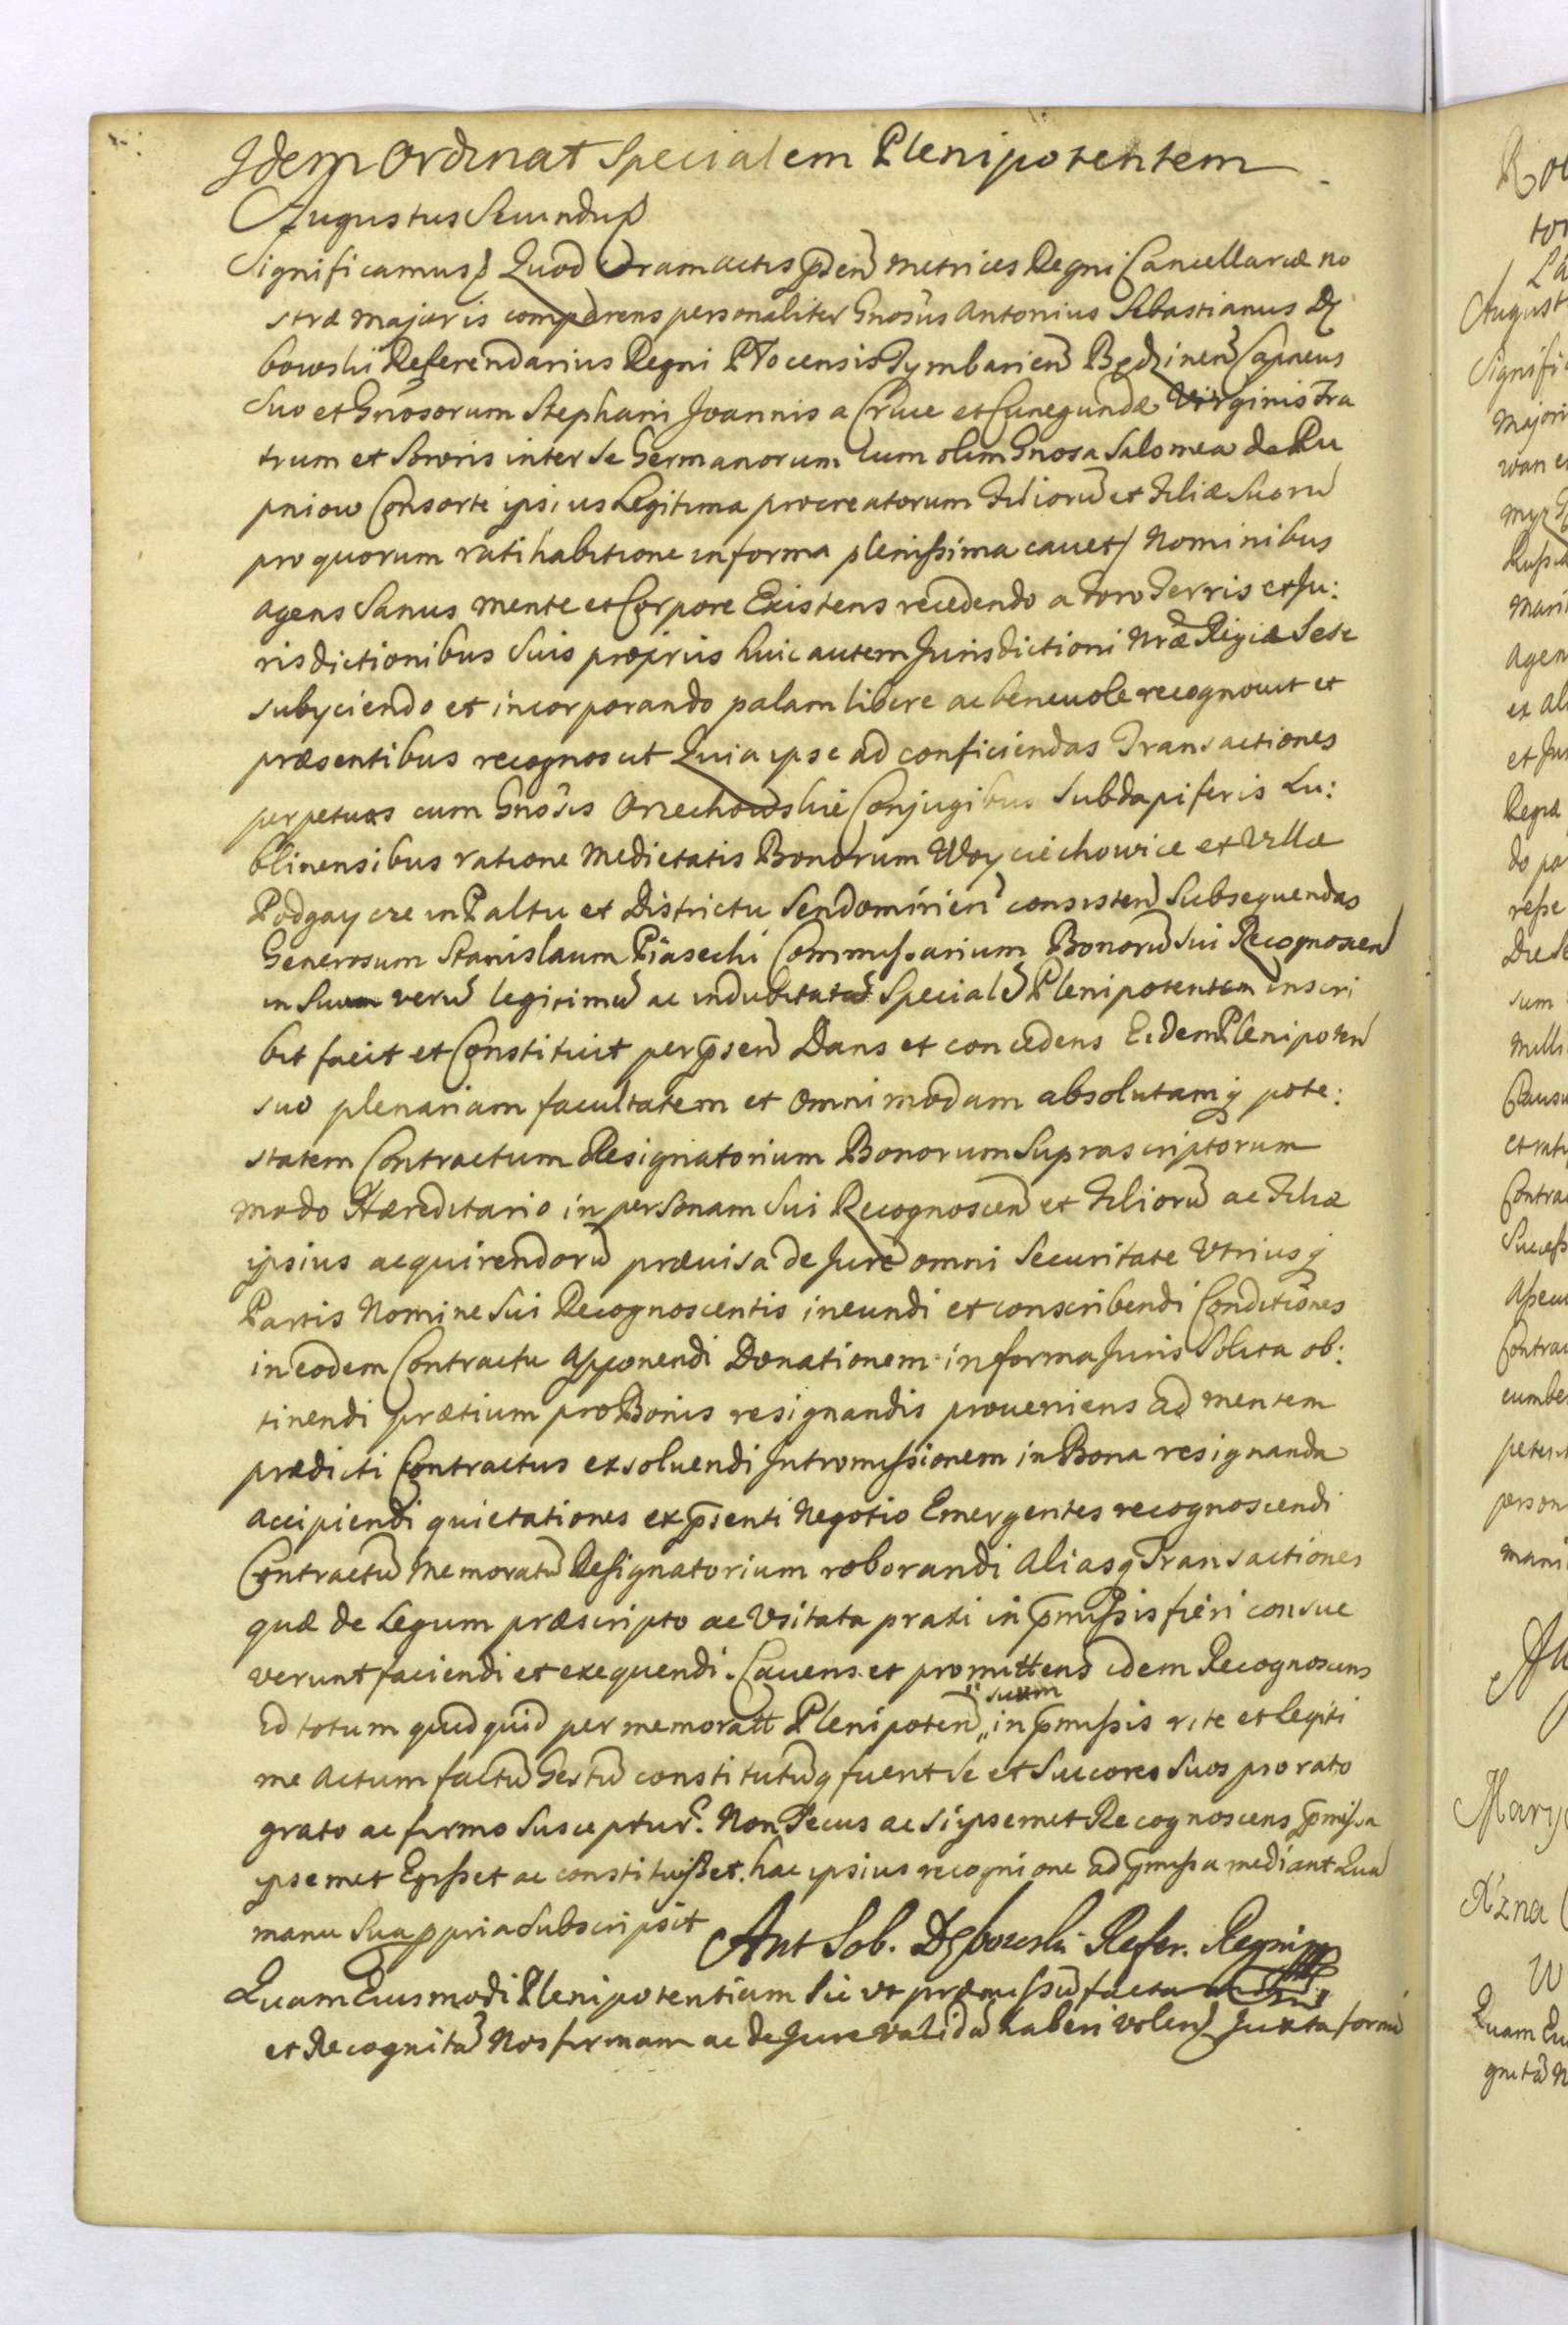 Idem Ordinat Specialem Plenipotentem
Augustus Secundus
Significamus Quod Coram actis pñsen Metrices Regni Cancellariæ no
stræ Majoris comparens personaliter Gnosus Antonius Sebastianus Dę
bowski Referendarius Regni Płocensis Tymbarien Będzinen Capneus
Suo et Gnosorum Stephani Joannis a Cruce et Cunegundæ Virginis Fra
trum et Sororis inter se Germanorum cum olim Gnosa Salomea de Ru
pniow Consorte ipsius Legitima procreatorum Filiorũ et Filiæ Suorũ
pro quorum ratihabitione in forma plenissima cavet/ Nominibus
agens Sanus mente et Corpore Existens recedendo a foro Terris et Ju:
risdictionibus Suis propriis huic autem Jurisdictioni Nræ Regiæ Sese
subyciendo et incorporando palam libere ac benevole recognovit et
præsentibus recognoscit Quia ipse ad conficiendas Transactiones
perpetuas cum Gnosis Orzechowskie Conjugibus Subdapiferis Lu:
blinensibus ratione Medietatis Bonorum Woyciechowice et Villæ
Podgaycze in Paltu et Districtu Sendomirien consisten Subsequendas
Generosum Stanislaum Piasecki Commissarium Bonorũ Sui Recognoscen
in Suum verũ legitimũ ac indubitatũ Specialẽ Plenipotentem inscri
bit facit et Constituit per pñsen Dans et concedens Eidem Plenipoten
suo plenariam facultatem et omnimodam absolutamq pote:
statem Contractum Resignatorium Bonorum Suprascriptorum
modo Hæreditario in personam Sui Recognoscen et Filiorũ ac Filiæ
ipsius acquirendorũ prævisa de Jure omni Securitate Utriusq
Partis Nomine Sui Recognoscentis ineundi et conscribendi Conditiones
in eodem Contractu apponendi Donationem in forma Juris Solita ob:
tinendi prætium pro Bonis resignandis proveniens ad mentem
prædicti Contractus exsolvendi Intromissionem in Bona resignanda
accipiendi quietationes ex pñsenti Negotio Emergentes recognoscendi
Contractũ Memoratũ Resignatorium roborandi aliasq Transactiones
quæ de Legum præscripto ac Usitata praxi in pmissis fieri consue
verunt faciendi et exequendi. Cavens et promittens idem Recognoscens
Id totum quidquid per memoratt Plenipoten „suum in pmissis rite et legiti
me actum factũ Gestũ constitutũq fuerit Se et Succores Suos pro rato
grato ac firmo Susceptur. Non Secus ac si ipsemet Recognoscens pmissa
ipsemet Egisset ac constituisset. hac ipsius recognione ad pmissa mediant Quã
manu Sua ppria Subscripsit Ant Seb. Dębowski Refer. Regni
Quam Eiusmodi Plenipotentiam Sic vt præmissũ facta
et Recognitã Nos firmam ac de Jure validã haberi volen Juxta formã